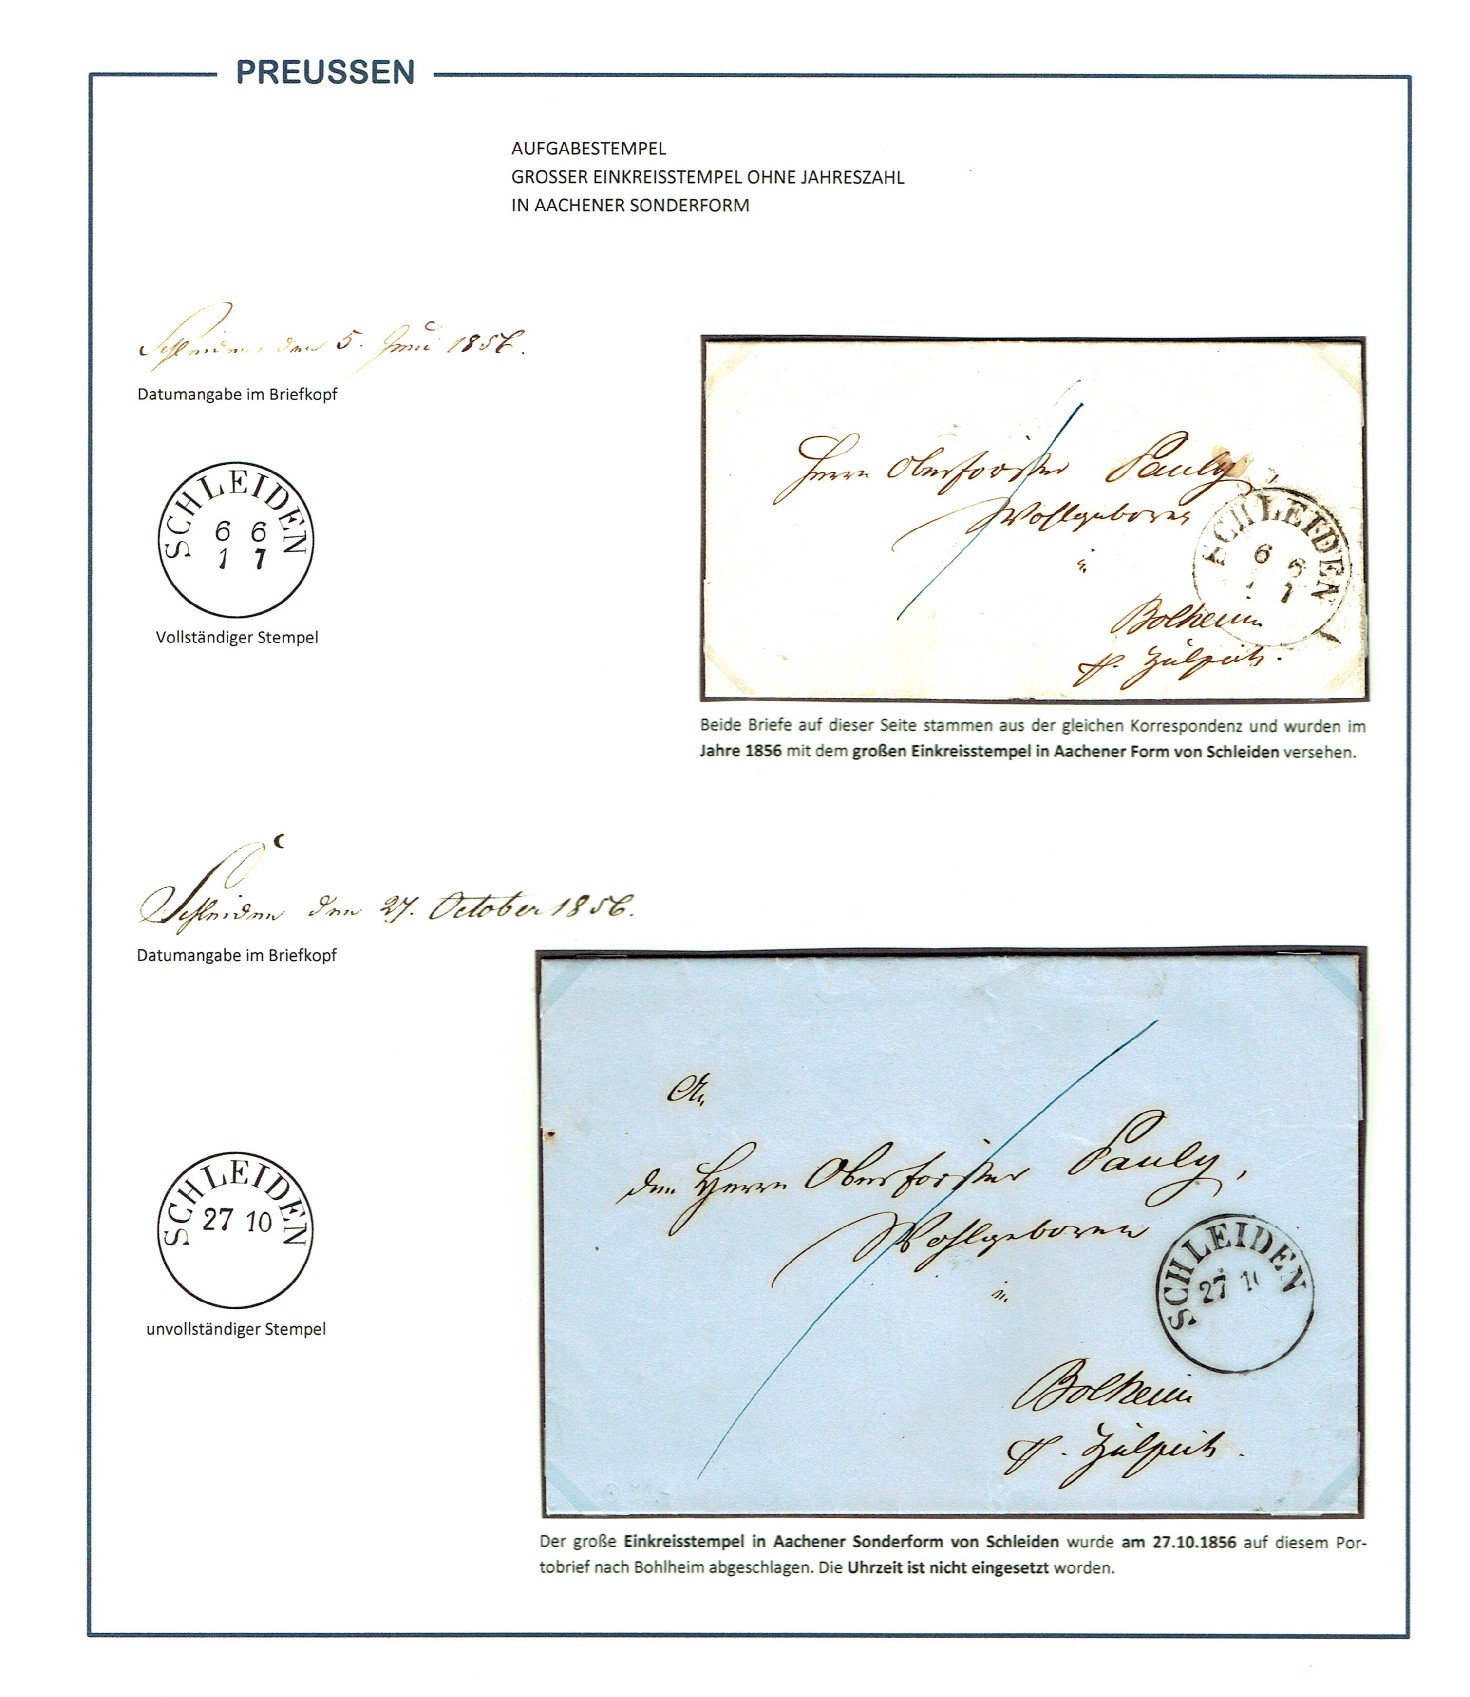 PREUSSEN
AUFGABESTEMPEL
GROSSER EINKREISSTEMPEL OHNE JAHRESZAHL
IN AACHENER SONDERFORM
Schleiden, den 5. Juni 1856.
Datumangabe im Briefkopf
SCHLEIDEN
6 6
1 7
Vollständiger Stempel
Herrn Oberförster Pauly,
Wohlgeboren
in
Bolheim
p. Zülpich.
SCHLEIDEN
6 6
1 7
Beide Briefe auf dieser Seite stammen aus der gleichen Korrespondenz und wurden im
Jahre 1856 mit dem großen Einkreisstempel in Aachener Form von Schleiden versehen.
Schleiden den 27. October 1856.
Datumangabe im Briefkopf
SCHLEIDEN
27 10
unvollständiger Stempel
An
den Herrn Oberförster Pauly,
Wohlgeboren
in
Bolheim
p. Zülpich.
SCHLEIDEN
27 10
Der große Einkreisstempel in Aachener Sonderform von Schleiden wurde am 27.10.1856 auf diesem Por-
tobrief nach Bohlheim abgeschlagen. Die Uhrzeit ist nicht eingesetzt worden.